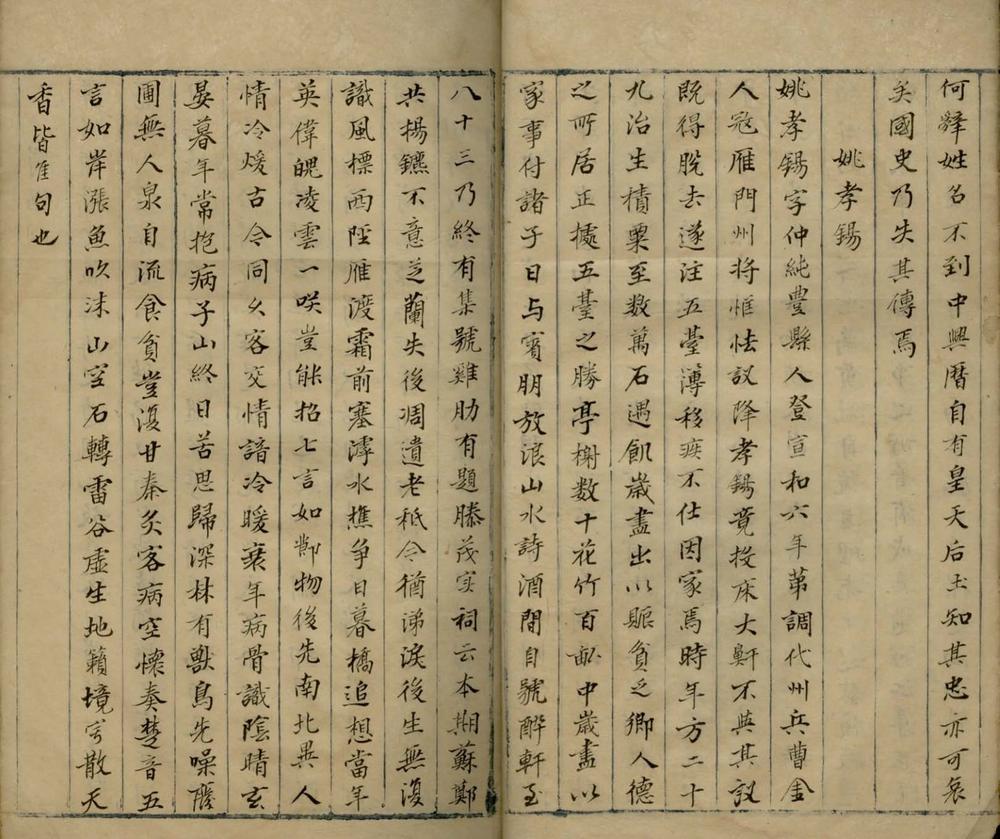 何辤姓名不到中興曆自有皇天后土知其忠亦可哀
矣國史乃失其傳焉
姚孝錫
姚孝錫字仲純豊縣人登宣和六年第調代州兵曹金
人宼雁門州将恇怯議降孝錫竟投床大鼾不與其議
既得脫去遂注五臺薄移疾不仕因家焉時年方二十
九治生積粟至数萬石遇飢歳盡出以賑貧乏鄉人德
之所居正據五臺之勝亭榭数十花竹百畝中歳盡以
家事付諸子日与賔朋放浪山水詩酒間自號醉軒至
八十三乃終有集號雞肋有題滕茂实祠云本期蘇鄭
共揚鑣不意芝蘭失後凋遺老秪令猶涕淚後生無復
識風標西陘雁渡霜前塞滹水樵争日暮橋追想當年
英偉魄凌雲一咲豈能招七言如鄰物後先南北異人
情冷煖古今同久客交情諳冷暖衰年病骨識陰晴玄
晏暮年常抱病子山終日苦思歸深林有獸鳥先噪廢
圃無人泉自流食貧豈復甘秦炙客病空懷奏楚音五
言如岸漲魚吹沫山空石轉雷谷虛生地籟境寂散天
香皆隹句也